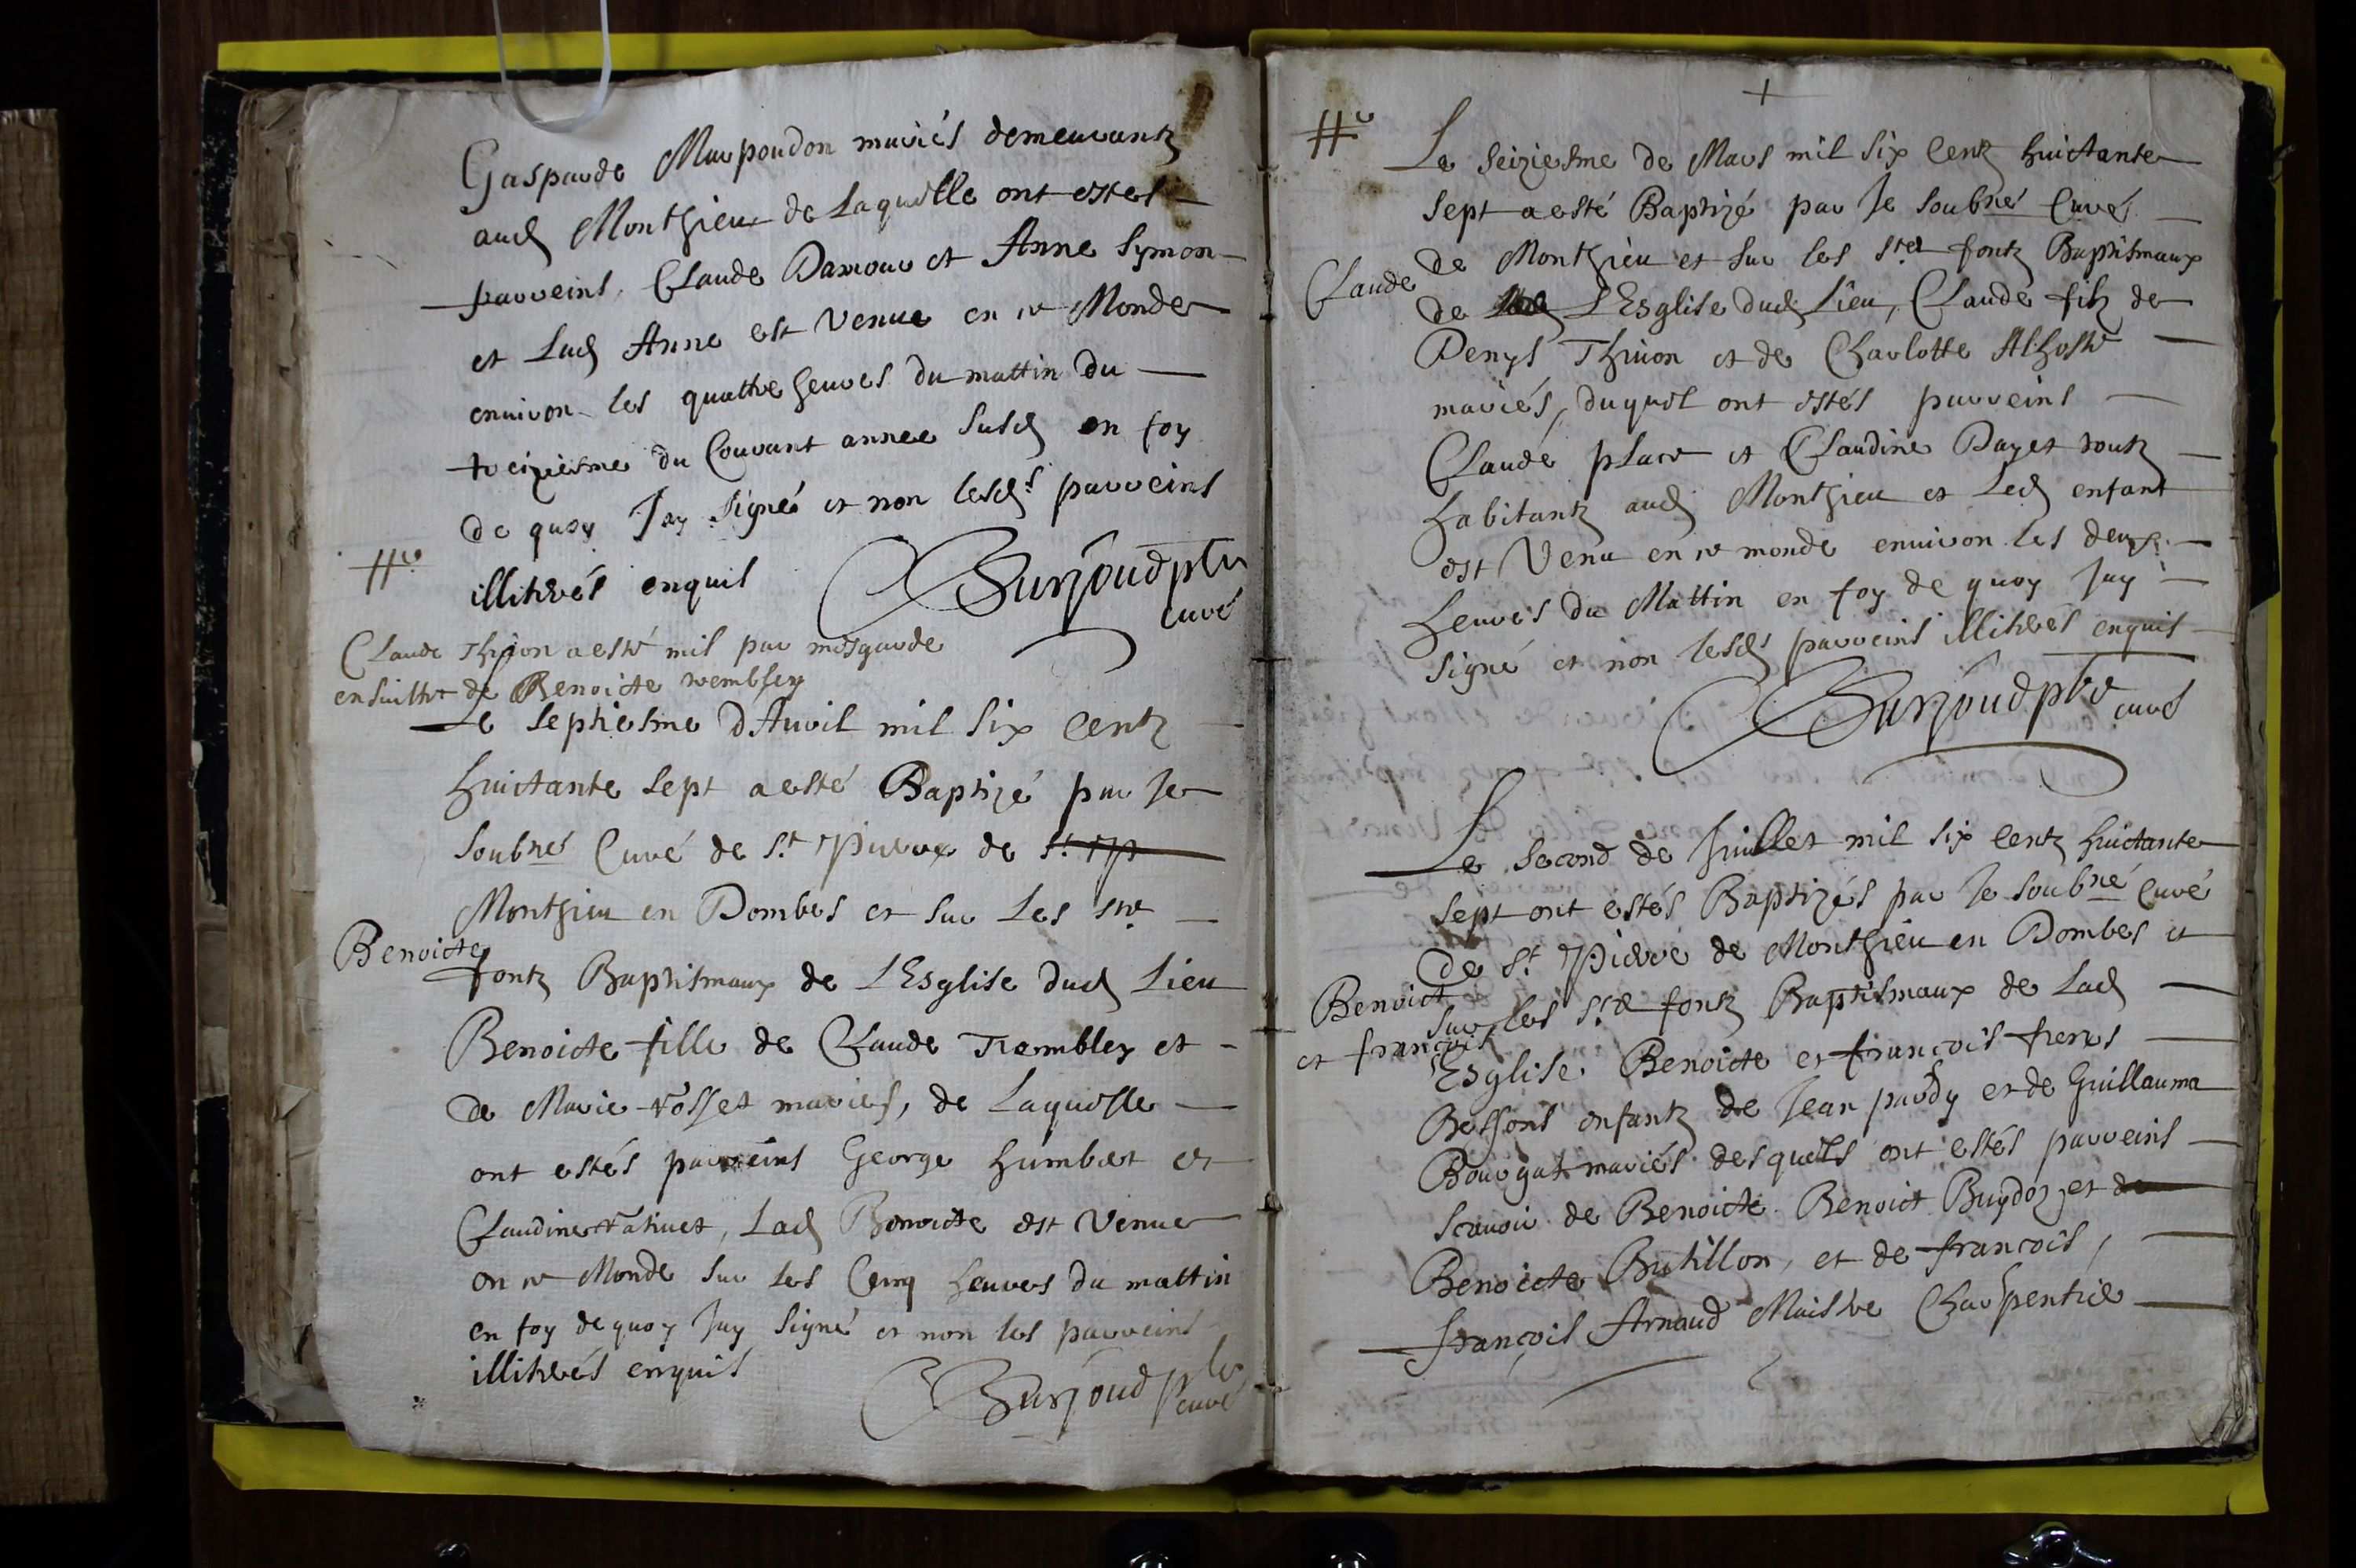 Gasparde Marpoudon mariés demeurantz
aud Monthieu de Laquelle ont estes
parreins, Claude Damour et Anne Symon
et Lad Anne est venue en ce Monde
environ les quattre heures du mattin du
treiziesme du Courant annee susd en foy
de quoy Jay signé et non lesds parreins
illitérés enquis
pbre
curé
Claude Thivon a esté mis par mesgarde
ensuitte de Benoicte trembley
Le septiesme dAvril mil six centz
huictante sept a esté Baptizé par Je
soubné Curé de St Pierre de St P
Monthieu en Dombes et sur Les ste
Benoicte
fontz Baptismaux de LEsglise dud Lieu
Benoicte fille de Claude Trembley et
de Marie fosset mariés, de Laquelle
ont estés parreins George humbert et
Claudine, Lad Benoicte est venue
en ce Monde sur les Cinq heures du mattin
en foy de quoy Jay signé et non les parreins
illitérés enquis
pbre
curé
+
Le seiziesme de Mars mil six centz huictante
sept a esté Baptizé par Je soubné Curé
de Monthieu et sur les stes fontz Baptismaux
Claude
de LEsglise dud Lieu, Claude filz de
Denys Thivon et de Charlotte Alhoste
mariés, duquel ont estés parreins
Claude place et Claudine Dayet toutz
habitantz aud Monthieu et Led enfant
est Venu en ce monde environ les deux
heures du Mattin en foy de quoy Jay
signé et non lesds parreins illitérés enquis
pbre curé
Le second de Juillet mil six centz huictante
sept ont estés Baptizés par Je soubné Curé
de St Pierre de Monthieu en Dombes et
Benoict
sur les stes fontz Baptismaux de Lad
et françois
Esglise Benoicte et françois freres
Bessons enfantz de Jean pardy et de Guillauma
Bourgat mariés desquels ont estés parreins
scavoir de Benoicte Benoict Buydoz, et de
Benoicte Butillon, et de francois,
françois Arnaud Maistre Charpentier